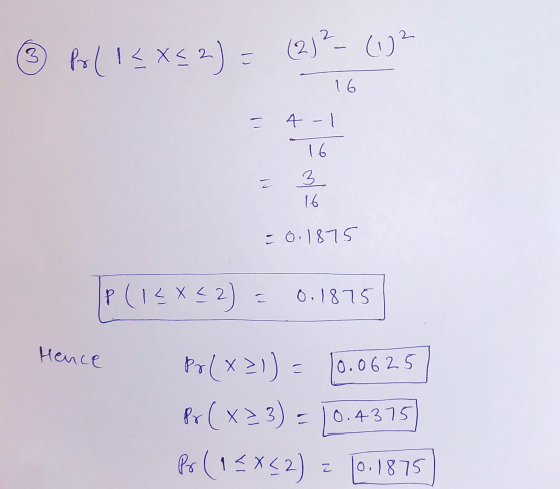 ③ Pr( 1 ≤ X ≤ 2) = (2)² - (1)² / 16
= 4 - 1 / 16
= 3 / 16
= 0.1875
P (1 ≤ X ≤ 2) = 0.1875
Hence Pr(X ≥ 1) = 0.0625
Pr(X ≥ 3) = 0.4375
Pr(1 ≤ X ≤ 2) = 0.1875